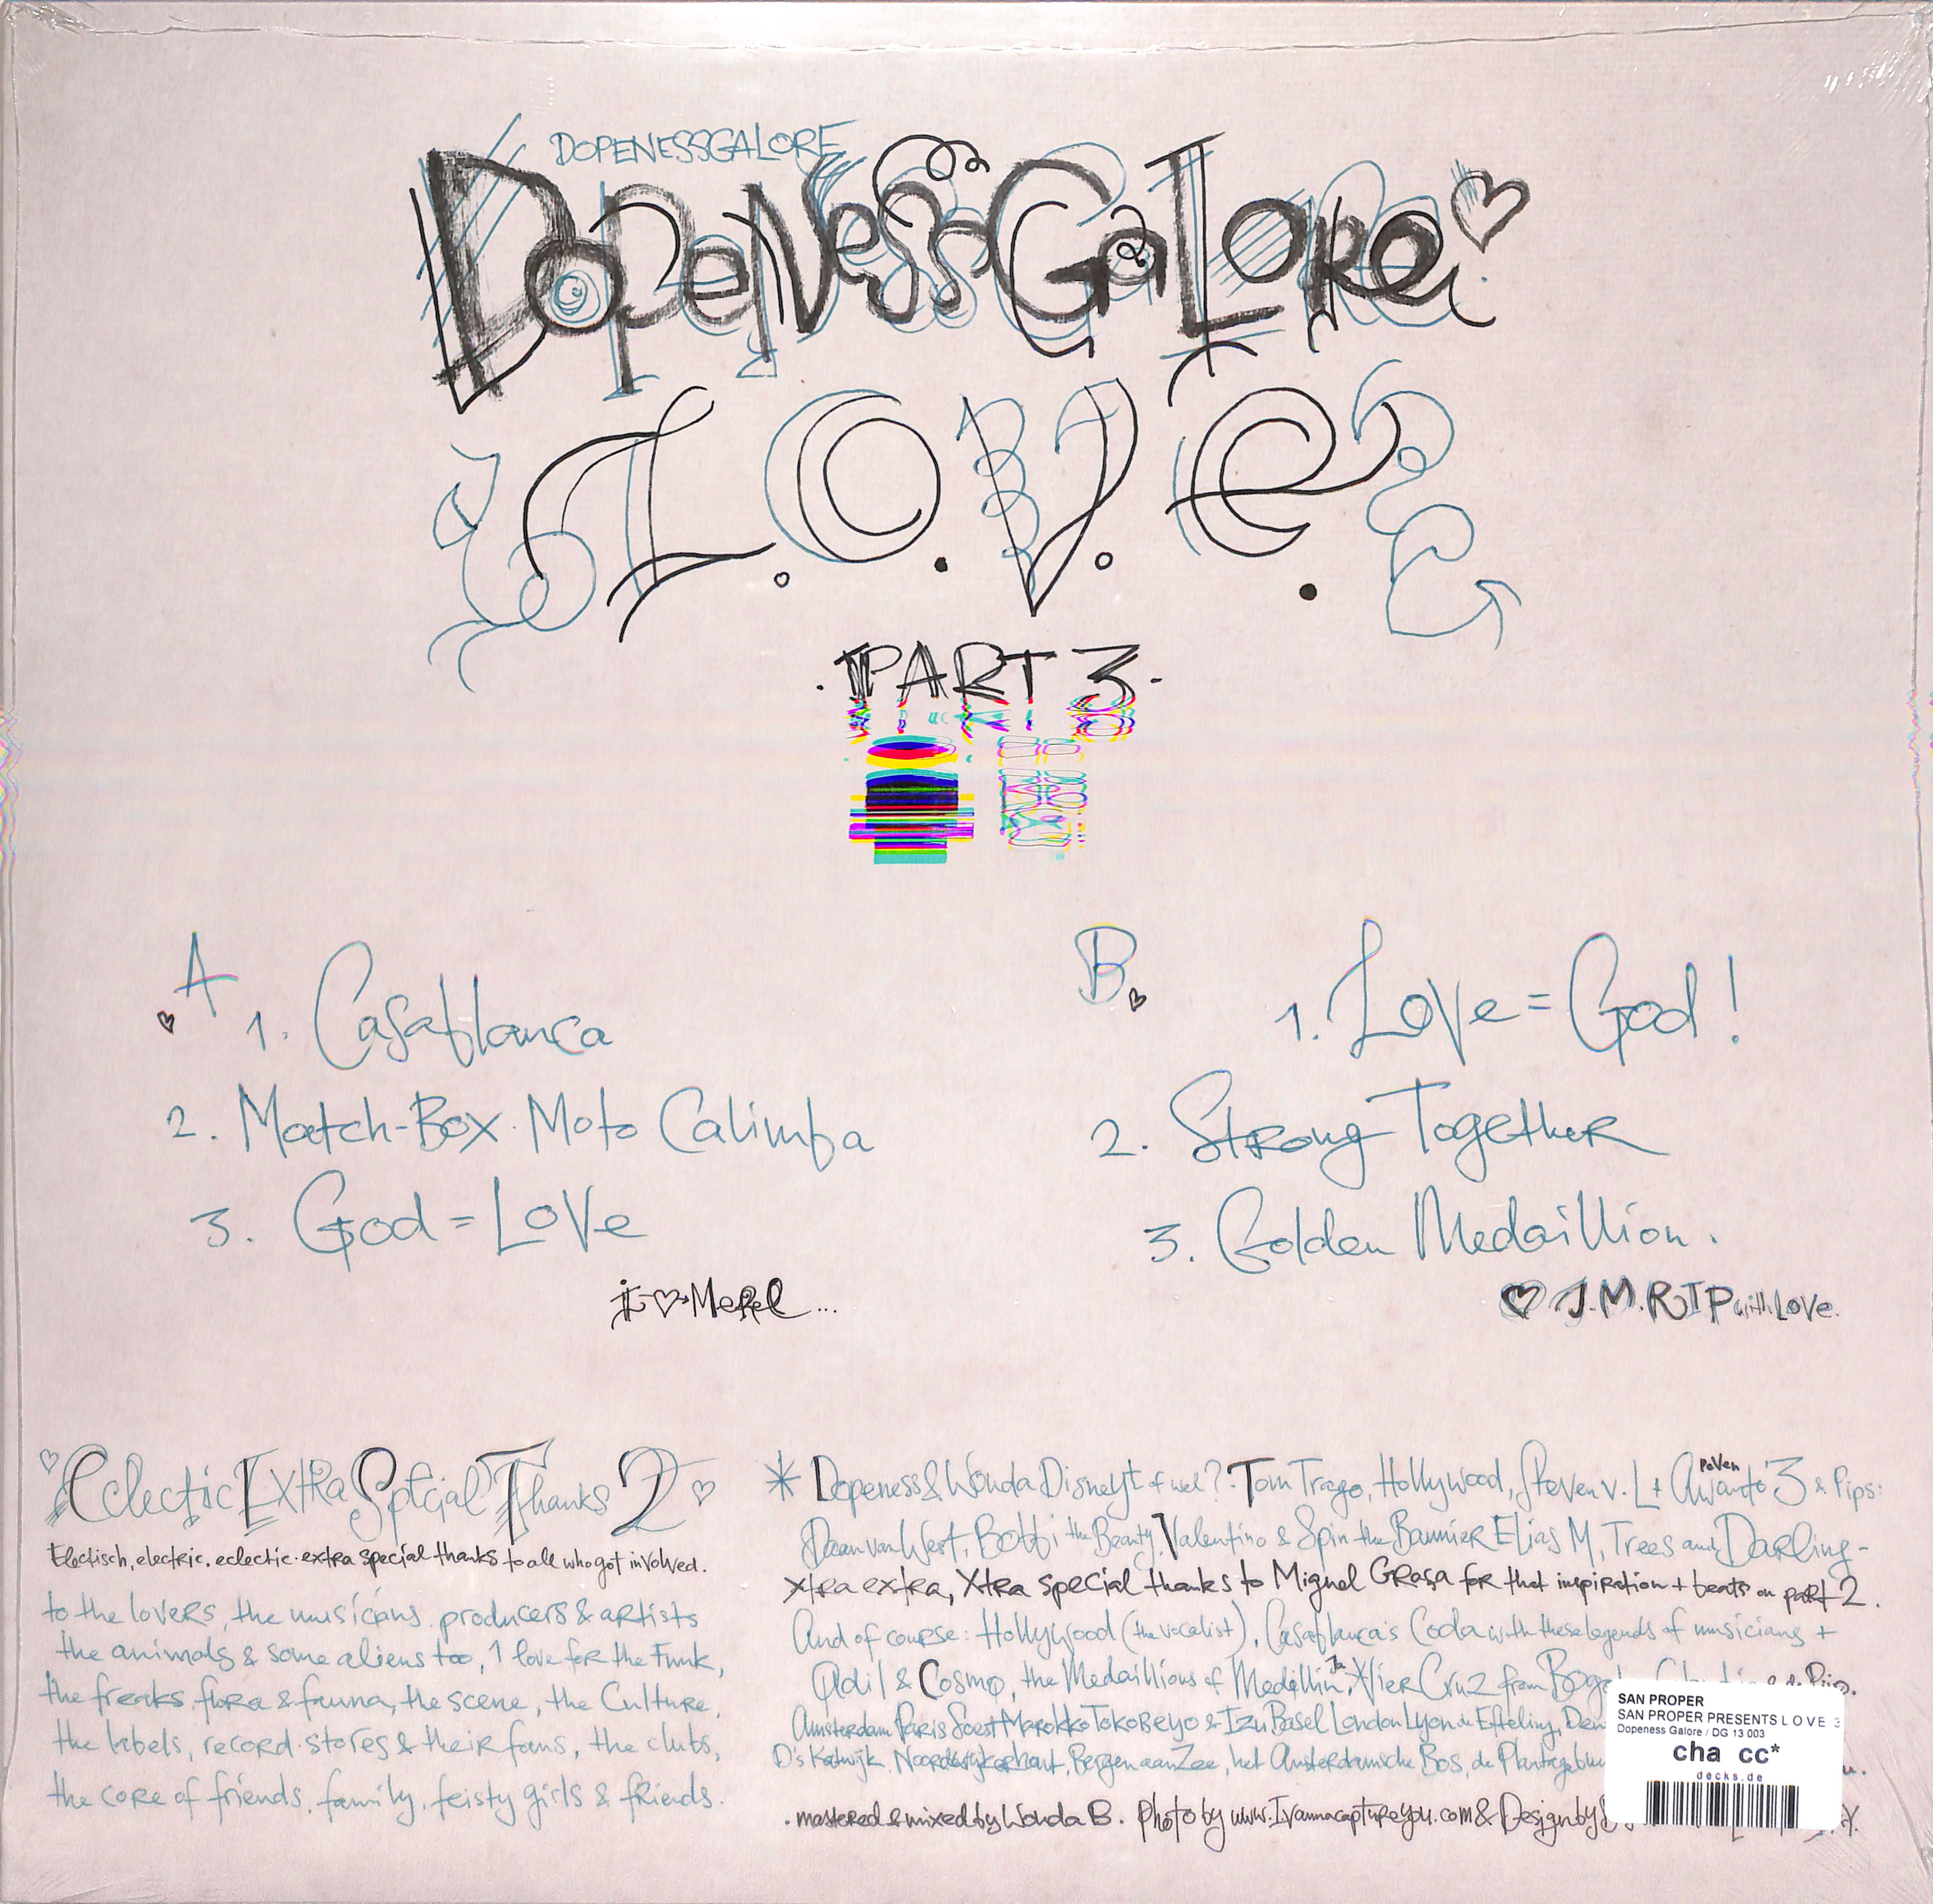 DOPENESSGALORE
DopeNess-GaLore
L.O.V.e.
.PART 3.
A
1. Casablanca
2. Match-Box Moto Calimba
3. God = Love
I ♡ Merel...
B.
1. Love = God!
2. Strong Together
3. Golden Medaillion.
♡ J.M. RIP with Love.
Eclectic Extra Special Thanks 2
Electisch, electric, eclectic extra special thanks to all who got involved.
to the lovers, the musicians, producers & artists
the animals & some aliens too, 1 love for the Funk,
the freaks, flora & fauna, the scene, the Culture,
the labels, record stores & their fans, the clubs,
the core of friends, family, feisty girls & friends.
* Dopeness & Wonda Disneyt of wel? Tom Trago, Hollywood, Steven v. L + 3 & Pips:
Daan van West, Botti the Beauty, Valentino & Spin the Bannier Elias M, Trees and Darling-
xtra extra, Xtra special thanks to Miguel Graça for that inspiration + beats on part 2.
And of course: Hollywood (the vocalist), Casablanca's Coda with these legends of musicians +
Adil & Cosmo, the Medaillions of Medellin, Xvier Cruz from
Amsterdam Paris Soest Marokko Toko Beyo & Izu Basel London Lyon de Efteling,
D's Katwijk, Noordwijkerhout, Bergen aan Zee, het Amsterdamsche Bos, de
. mastered & mixed by Wonda B. Photo by www.Ivannacaptureyou.com & Design by
SAN PROPER
SAN PROPER PRESENTS L O V E 3
Dopeness Galore / DG 13 003
cha cc*
decks.de